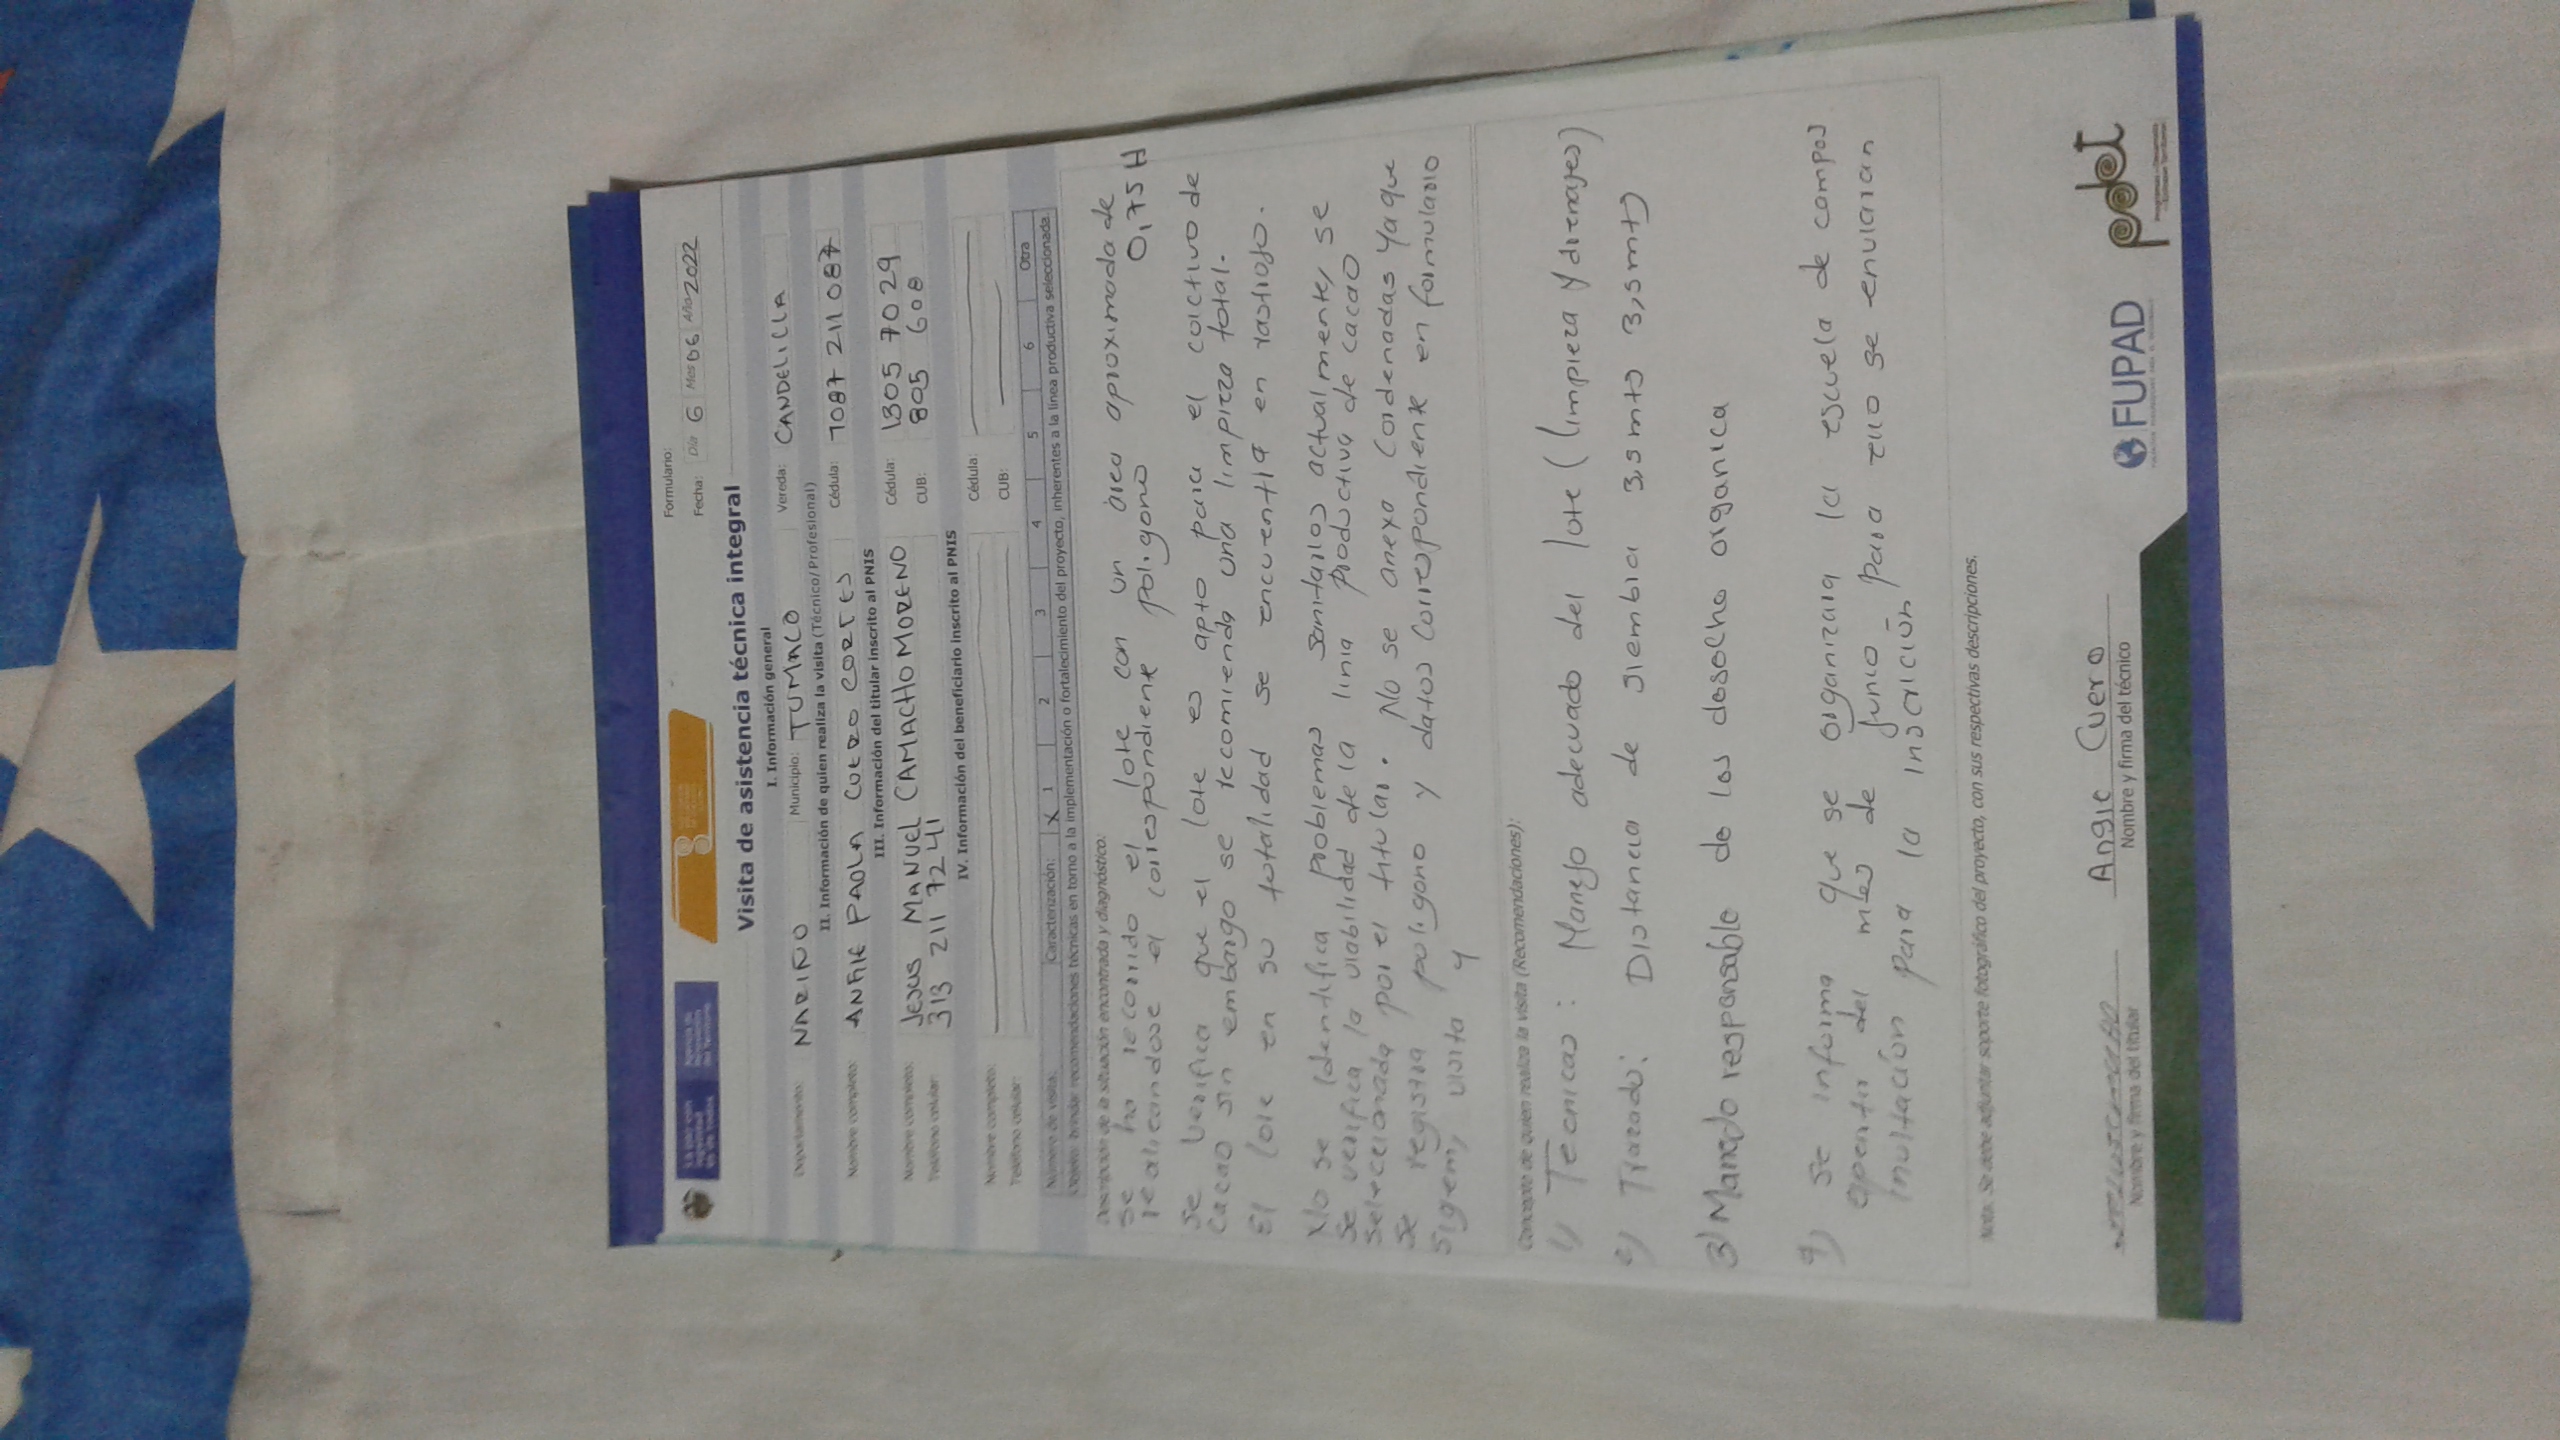 Formulario:
Fecha: Día 6 Mes 06 Año 2022
Visita de asistencia técnica integral
I. Información general
Departamento: NARIÑO Municipio: TUMACO Vereda: CANDELILLA
II. Información de quien realiza la visita (Técnico/Profesional)
Nombre completo: ANGIE PAOLA CUERO CORTES Cédula: 1087 211 087
III. Información del titular inscrito al PNIS
Nombre completo: JESUS MANUEL CAMACHO MORENO Cédula: 1305 7029
Teléfono celular: 313 211 7241 CUB: 895 608
IV. Información del beneficiario inscrito al PNIS
Nombre completo: Cédula:
Teléfono celular: CUB:
Número de visita: Caracterización: X 1 2 3 4 5 6 Otra
Objeto: brindar recomendaciones técnicas en torno a la implementación o fortalecimiento del proyecto, inherentes a la línea productiva seleccionada.
Descripción de la situación encontrada y diagnóstico:
Se ha recorrido el lote con un área aproximada de
realizandose el correspondiente poligono 0,75 H
Se verifica que el lote es apto para el coltivo de
cacao sin embargo se recomienda una limpieza total.
El lote en su totalidad se encuentra en rastrojo.
No se identifica problemas sanitarios actualmente, se
Se verifica la viabilidad de la linia productiva de cacao
Seleccionada por el titular. No se anexa cordenadas ya que
Se registra poligono y datos correspondiente en formulario
Sigem, visita y
Concepto de quien realiza la visita (Recomendaciones):
1) Tecnicas: Manejo adecuado del lote (limpieza y drenajes)
2) Trazado: Distancia de siembra 3,5 mts 3,5 mts
3) Manejo responsable de los desecho organica
4) Se informa que se organizara la escuela de campos
apartir del mes de junio para ello se enviaran
invitación para la inscrición
Nota: Se debe adjuntar soporte fotográfico del proyecto, con sus respectivas descripciones.
Angie Cuero
Nombre y firma del titular Nombre y firma del técnico
FUPAD pdet